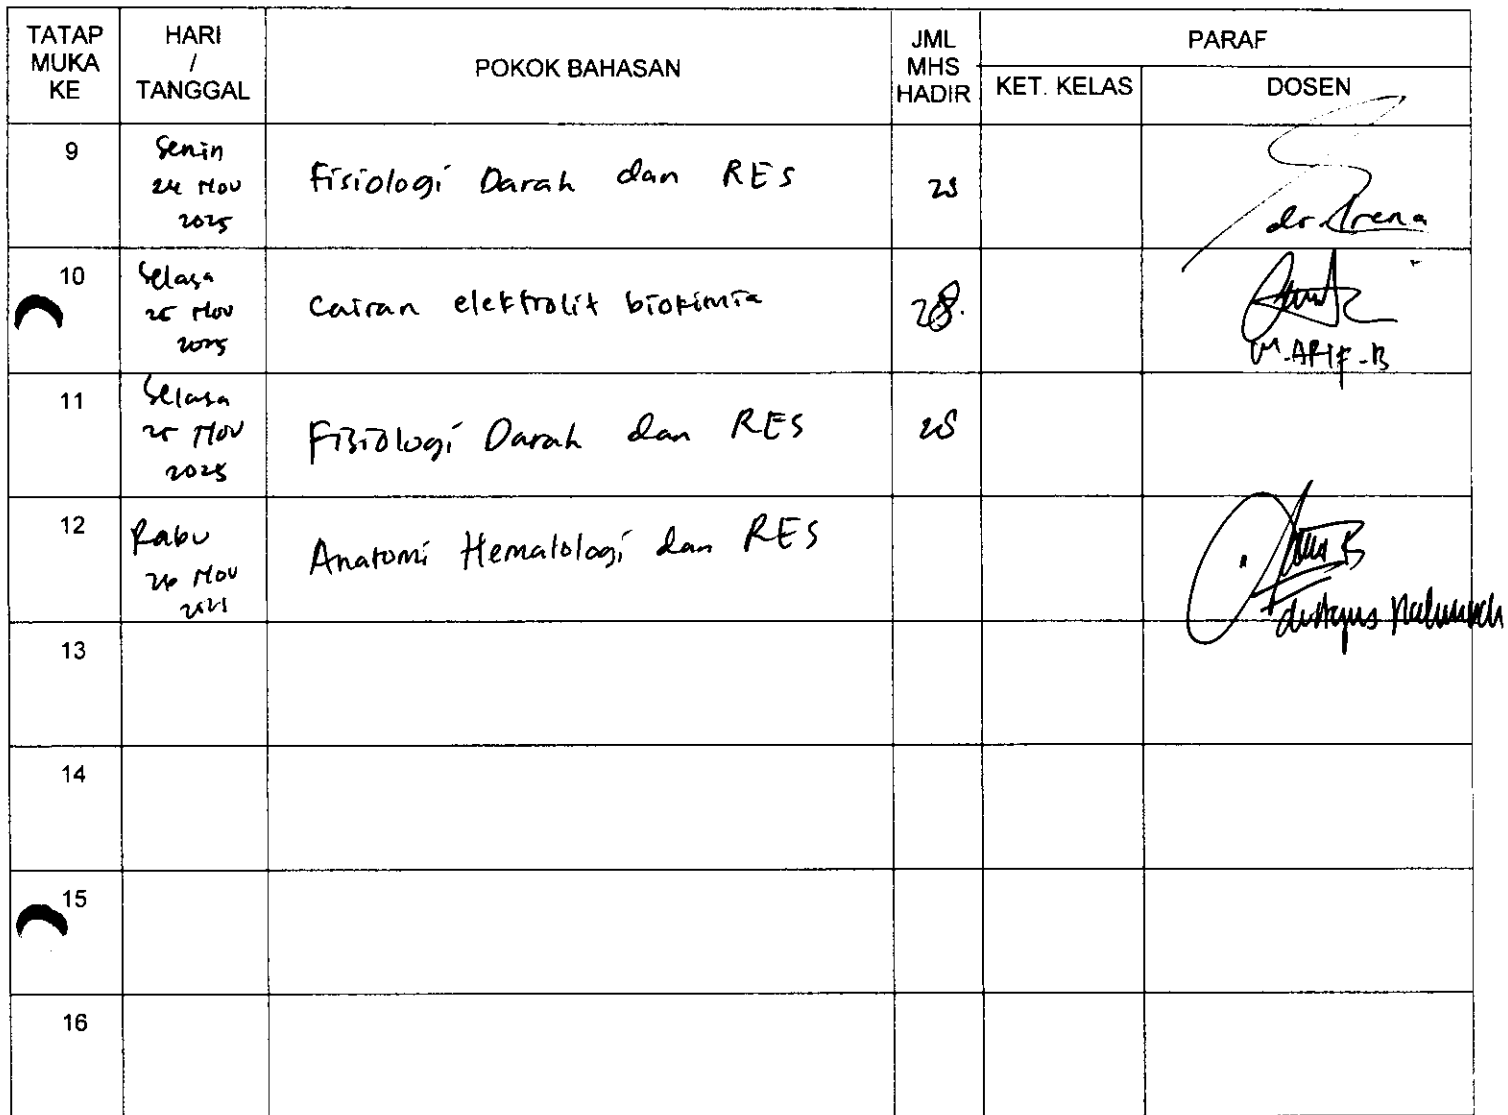 TATAP MUKA KE
HARI / TANGGAL
POKOK BAHASAN
JML MHS HADIR
PARAF
KET. KELAS
DOSEN
9
Senin
24 Nov
2025
Fisiologi Darah dan RES
28
dr. Irena
10
Selasa
25 Nov
2025
Cairan elektrolit biokimia
28.
M. ARIF. B
11
Selasa
25 Nov
2025
Fisiologi Darah dan RES
28
12
Rabu
26 Nov
2025
Anatomi Hematologi dan RES
dr. Agus
13
14
15
16